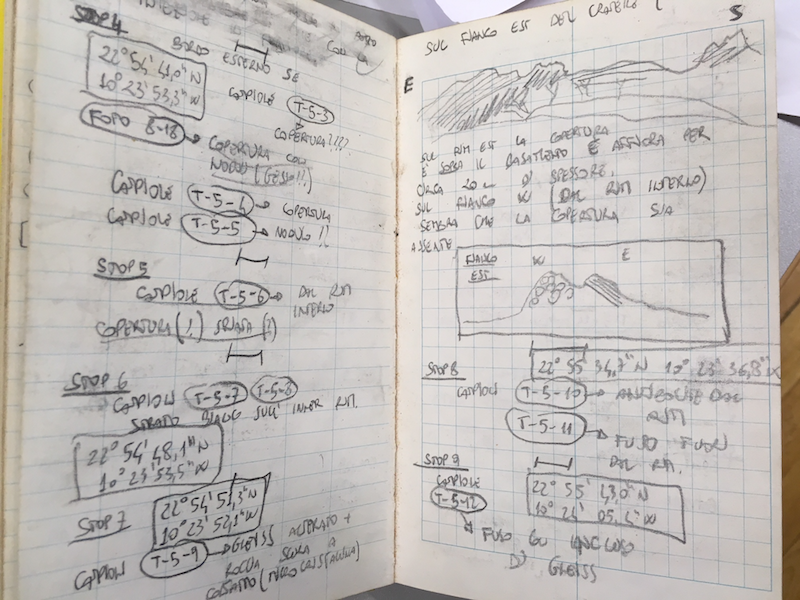 STOP 4
22° 54' 41,0" N
10° 23' 53,3" W
BORDO ESTERNO SE
CAMPIONE T-5-3
COPERTURA????
FOTO 8-18 → COPERTURA CON
NODULI (GESSO!!)
CAMPIONE T-5-4 → COPERTURA
CAMPIONE T-5-5 → NODULO !!
STOP 5
CAMPIONE T-5-6 → DAL RIM
INTERNO
COPERTURA (!) STRIATA (!)
STOP 6
CAMPIONI T-5-7 T-5-8
STRATO BIANCO SULL' INNER RIM.
22° 54' 48,1" N
10° 23' 53,5" W
STOP 7
22° 54' 51,3" N
10° 23' 52,1" W
CAMPIONI T-5-9 → GNEISS ALTERATO +
ROCCIA SCURA A
CONTATTO
SUL FIANCO EST DEL CRATERE
S
E
SUL RIM EST LA COPERTURA
È SOPRA IL BASAMENTO E AFFIORA PER
CIRCA 20 m DI SPESSORE.
SUL FIANCO W (DAL RIM INTERNO)
SEMBRA CHE LA COPERTURA SIA
ASSENTE
FIANCO
EST
W E
STOP 8
22° 55' 34,7" N 10° 23' 36,8" W
CAMPIONI T-5-10 → DAL
RIM
T-5-11 → FUSO FUORI
DAL RIM.
STOP 9
CAMPIONE
T-5-12
22° 55' 43,0" N
W
→ FUSO CON INCLUSO
DI GNEISS